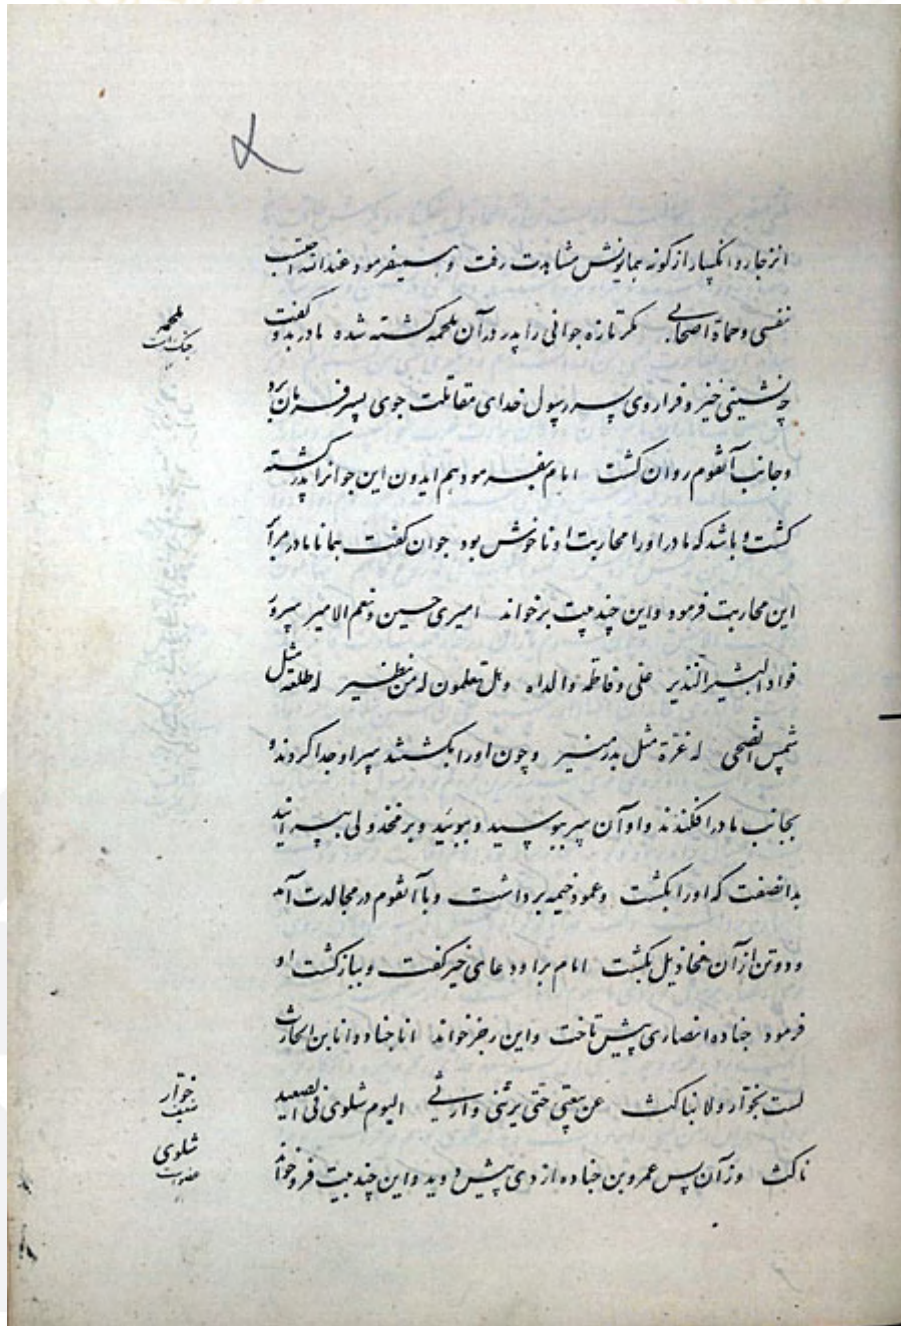 انزجار و انکسار از گونه همایونش مشاهدت رفت و همیفرمود عندالله احتسب
نفسی و حماة اصحابی مگر تازه جوانی را پدر در آن ملحمه کشته شده مادر بدو گفت
ملحمه
جنگ است
چه نشینی خیز و فراروی پسر رسول خدای مقاتلت جوی پسر فرمان برد
و جانب آنقوم روان گشت امام بفرمود هم ایدون این جوانرا پدر کشته
گشت و باشد که مادر او را محاربت او ناخوش بود جوان گفت همانا مادر مرا
این محاربت فرموده و این چند بیت برخواند امیری حسین و نعم الامیر سرور
فواد البشیر النذیر علی و فاطمه والداه و هل تعلمون له من نظیر له طلعه مثل
شمس الضحی له غرة مثل بدر منیر و چون او را بکشتند سر او جدا کردند و
بجانب مادر افکندند و او آن سر ببوسید و ببوئید و بر مخذولی بپرانید
بدانصفت که او را بکشت و عمود خیمه برداشت و با آنقوم در مجالدت آمد
و دو تن از آن مخاذیل بکشت امام برا و دعای خیر گفت و ببازگشت او
فرمود جناده انصاری پیش تاخت و این رجز خواند انا جناد و انا بن الحارث
لست بخوار و لا بناکث عن بیعتی حتی یرثنی وارثی الیوم شلوی فی الصعید
خوار
ضعیف
ناکث وز آن پس عمرو بن جناده از دی پیش دوید و این چند بیت فرو خواند
شلوی
عضو است